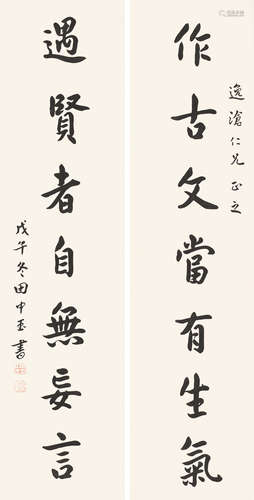 逸滄仁兄正之
作古文當有生氣
遇賢者自無妄言
戊午冬田中玉書